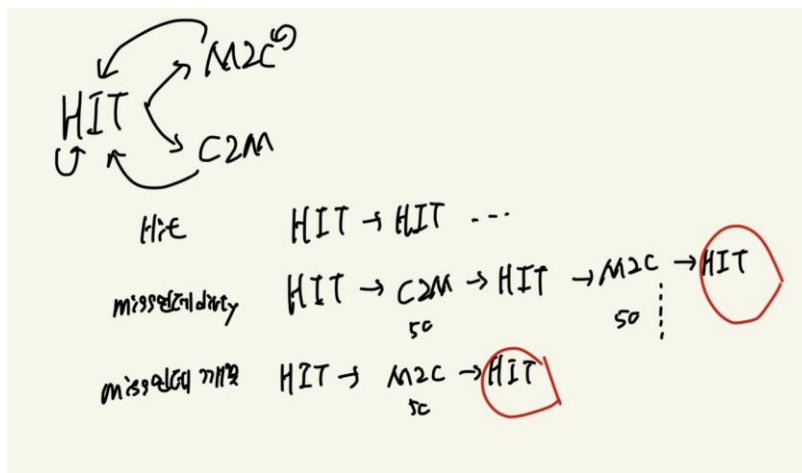 M2C
HIT
C2M
Hit HIT → HIT ...
miss인데 dirty HIT → C2M → HIT → M2C → HIT
50 50
miss인데 깨끗 HIT → M2C → HIT
50